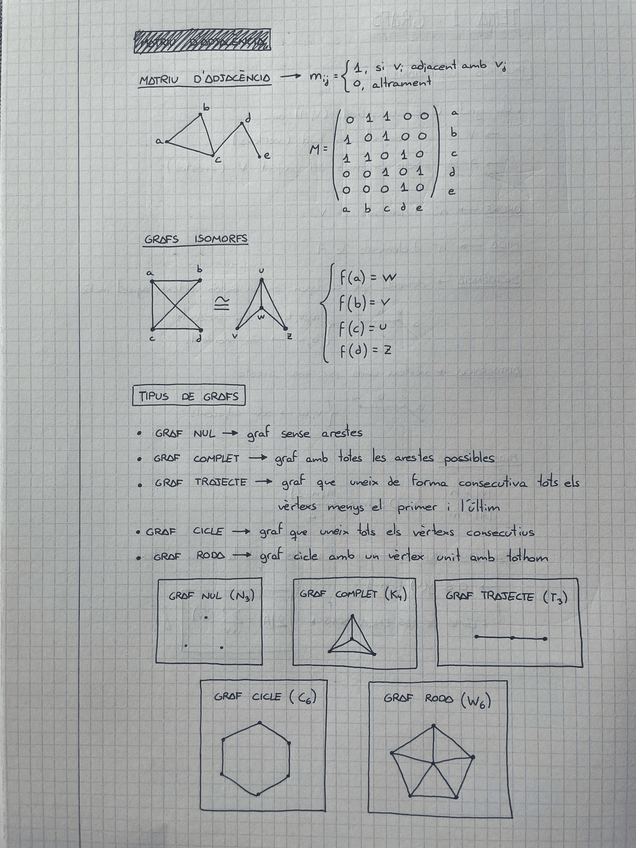 MATRIU D'ADJACÈNCIA → mij = { 1, si vi adjacent amb vj
0, altrament
b
d
a
c
e
M =
0 1 1 0 0 a
1 0 1 0 0 b
1 1 0 1 0 c
0 0 1 0 1 d
0 0 0 1 0 e
a b c d e
GRAFS ISOMORFS
a b
c d
≅
u
w
v z
f(a) = w
f(b) = v
f(c) = u
f(d) = z
TIPUS DE GRAFS
• GRAF NUL → graf sense arestes
• GRAF COMPLET → graf amb totes les arestes possibles
• GRAF TRAJECTE → graf que uneix de forma consecutiva tots els
vèrtexs menys el primer i l'últim
• GRAF CICLE → graf que uneix tots els vèrtexs consecutius
• GRAF RODA → graf cicle amb un vèrtex unit amb tothom
GRAF NUL (N3)
GRAF COMPLET (K4)
GRAF TRAJECTE (T3)
GRAF CICLE (C6)
GRAF RODA (W6)